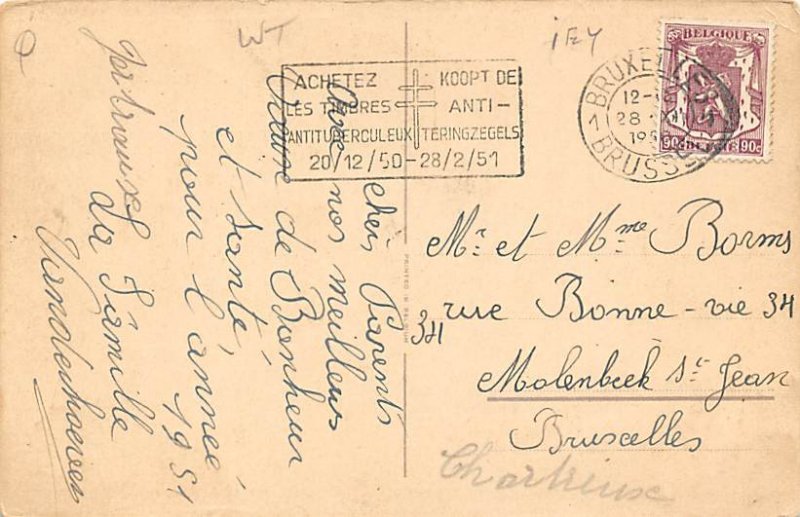 WT
IEY
BELGIQUE
90c BELGIE 90c
BRUXELLES
12-
28
19
BRUSSEL
ACHETEZ
LES TIMBRES
ANTITUBERCULEUX
20/12/50-28/2/51
KOOPT DE
ANTI-
TERINGZEGELS
chers Parents
Avec nos meilleurs
Vœux de Bonheur
et santé,
pour l'année
1951
La Famille
Vanderhoeven
PRINTED IN BELGIUM
Mr et Mme Borms
rue Bonne-vie 34
34
Molenbeek St Jean
Bruxelles
Chartreuse